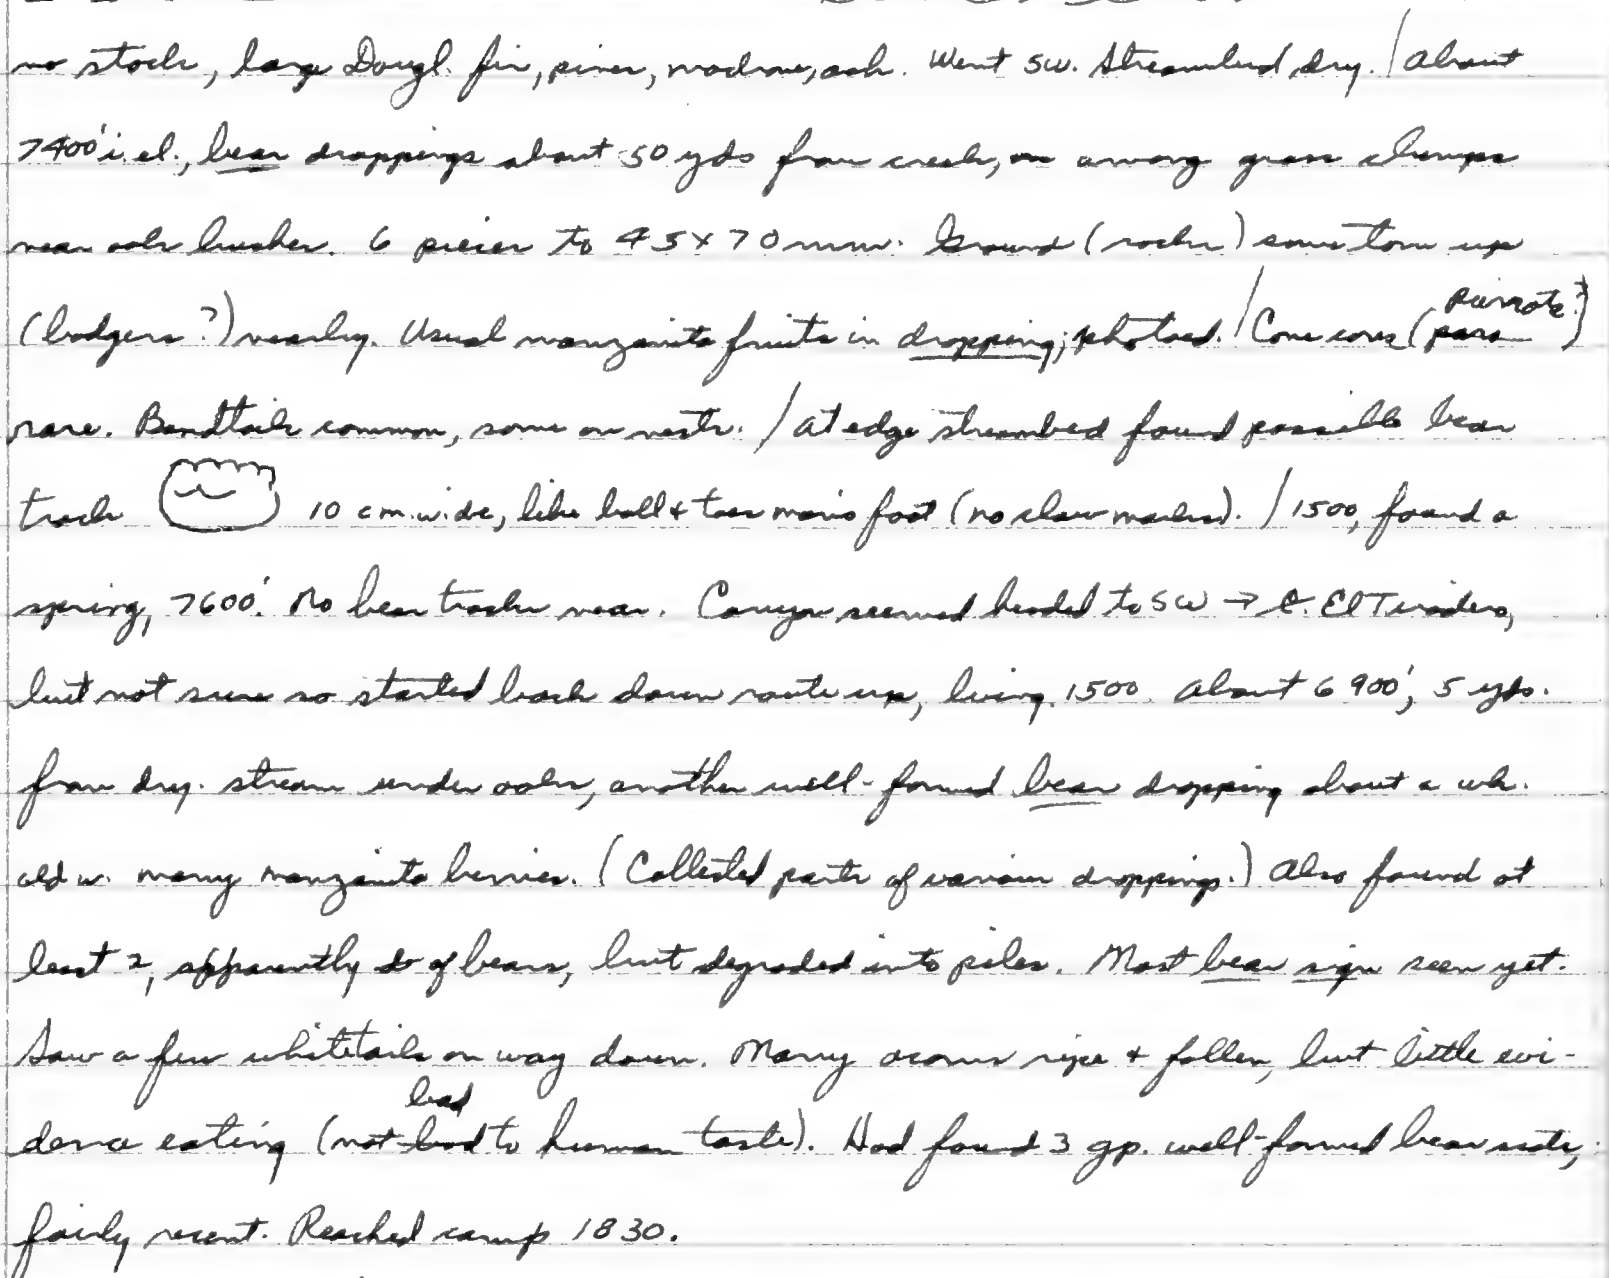 no stock, large Dougl. fir, pines, madrone, oak. Went SW. Streambed dry. / About
7400' i. el., bear droppings about 50 yds from creek, on among grass clumps
near oak bushes. 6 pieces to 45 x 70 mm. Ground (rocks) some torn up
(badgers?) nearby. Usual manzanita fruits in dropping; photoed. / Cone cores (para
rare. Bandtails common, some on nests. / At edge streambed found possible bear
track 10 cm. wide, like ball & toes man's foot (no claw marks). / 1500, found a
spring, 7600'. No bear tracks near. Canyon seemed headed to SW → C. El Tiradero,
but not sure so started back down route up, living. 1500. About 6900', 5 yds.
from dry. stream under oaks, another well-formed bear dropping about a wk.
old w. many manzanita berries. (Collected parts of various droppings.) Also found at
least 2, apparently do of bears, but degraded into piles. Most bear sign seen yet.
Saw a few whitetails on way down. Many acorns ripe & fallen, but little evi-
bad
dence eating (not bad to human taste). Had found 3 gp. well-formed bear scats,
fairly recent. Reached camp 1830.